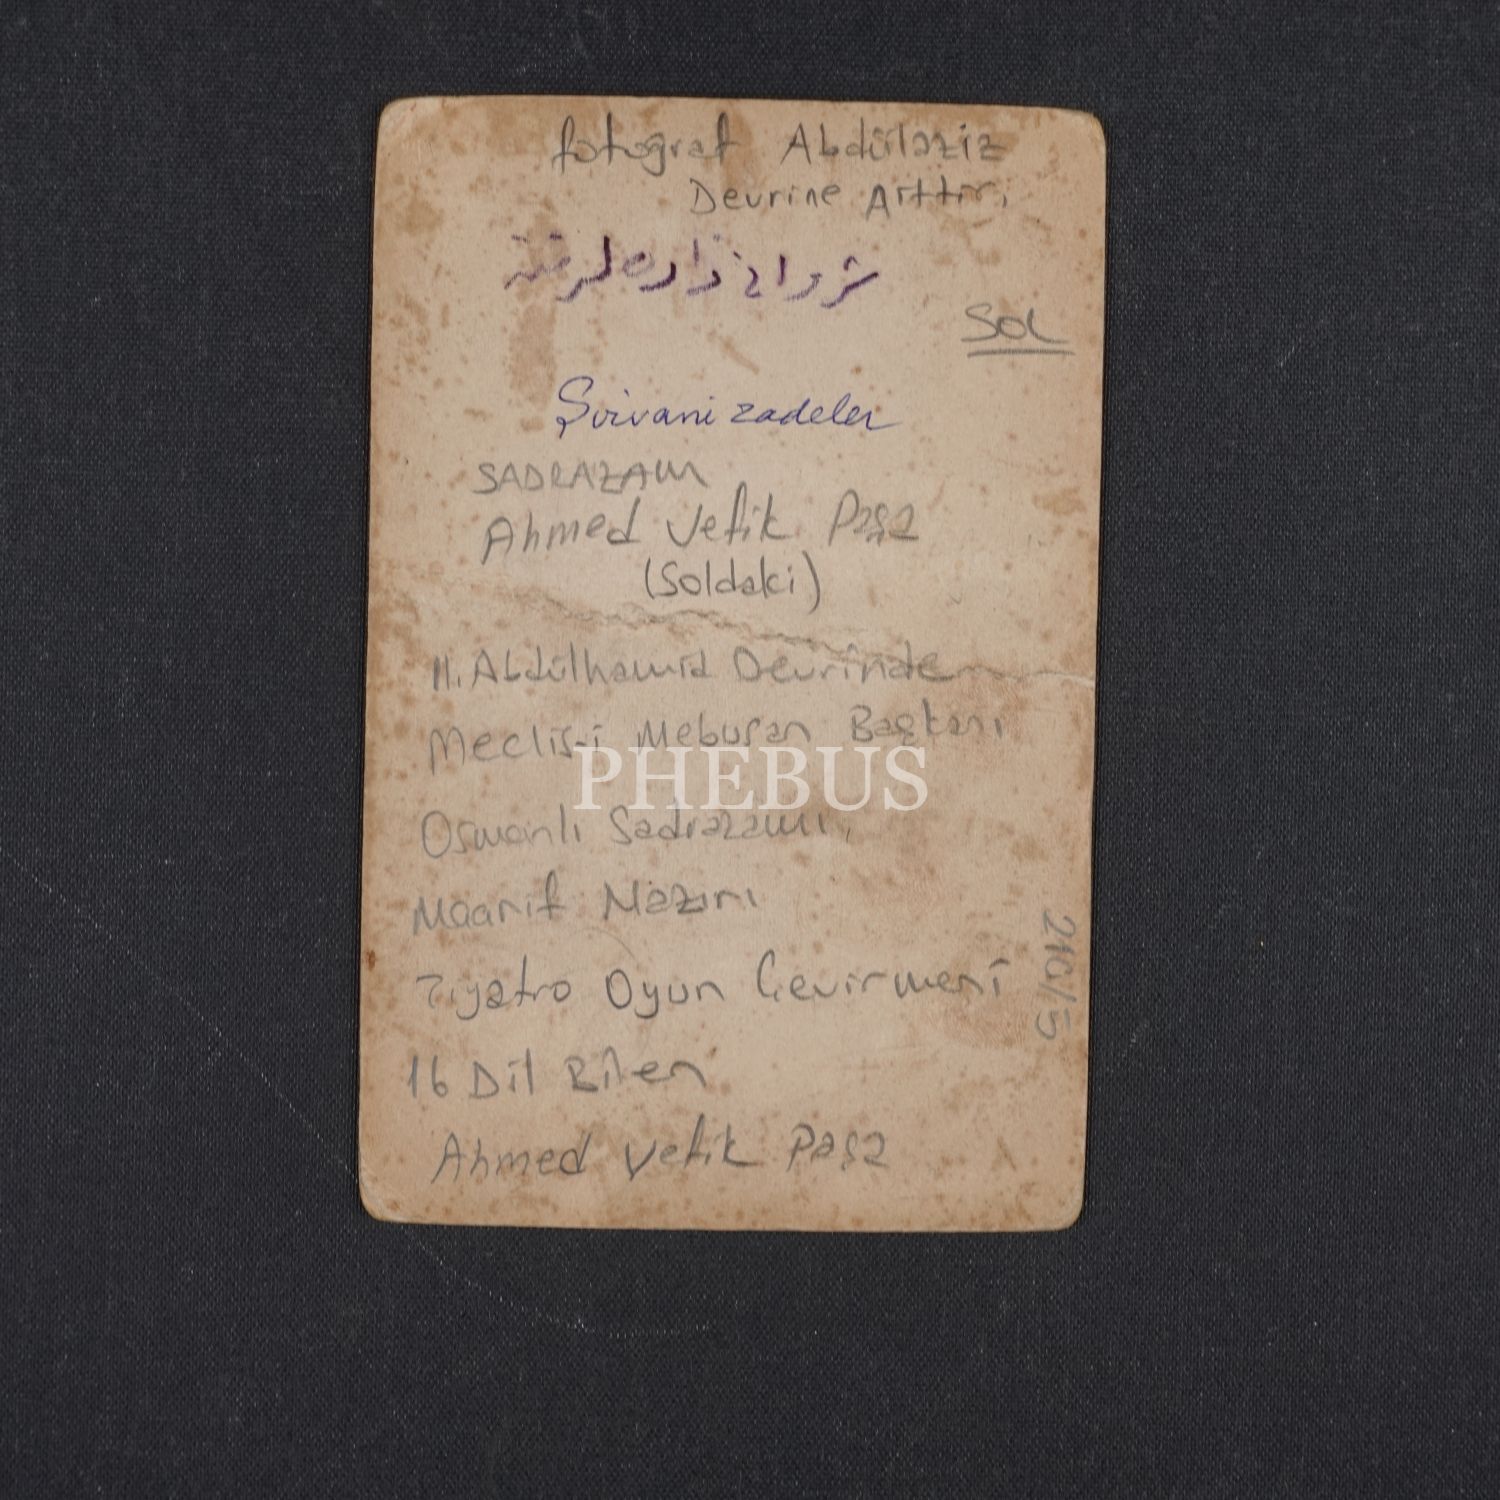 fotoğraf Abdülaziz
Devrine Aittir.
شروانی زاده لر
SOL
Şirvani zadeler
SADRAZAM
Ahmed Vefik Paşa
(Soldaki)
II. Abdülhamid Devrinde
Meclis-i Mebusan Başkanı
PHEBUS
Osmanlı Sadrazamı,
Maarif Nazırı
Tiyatro Oyun Çevirmeni
16 Dil Bilen
Ahmed Vefik Paşa